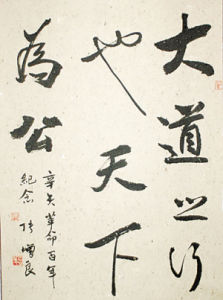 大道之行
也天下
為公
辛亥革命百年
紀念 陸增良